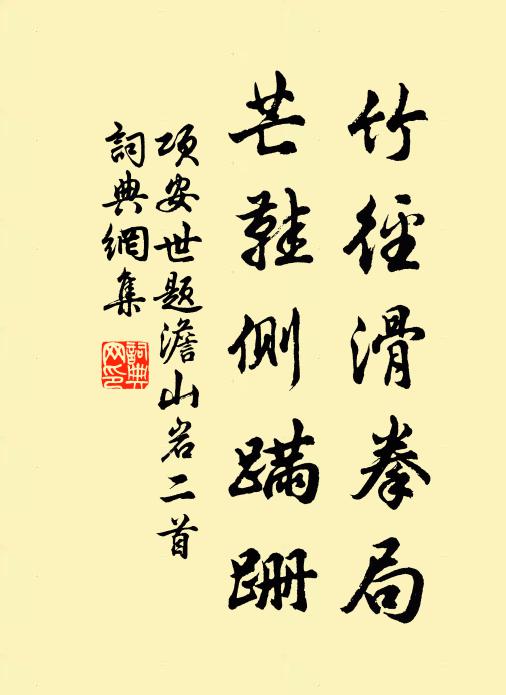 竹徑滑拳局
芒鞋側蹣跚
項安世題澹山岩二首
詞典網集
詞典网印